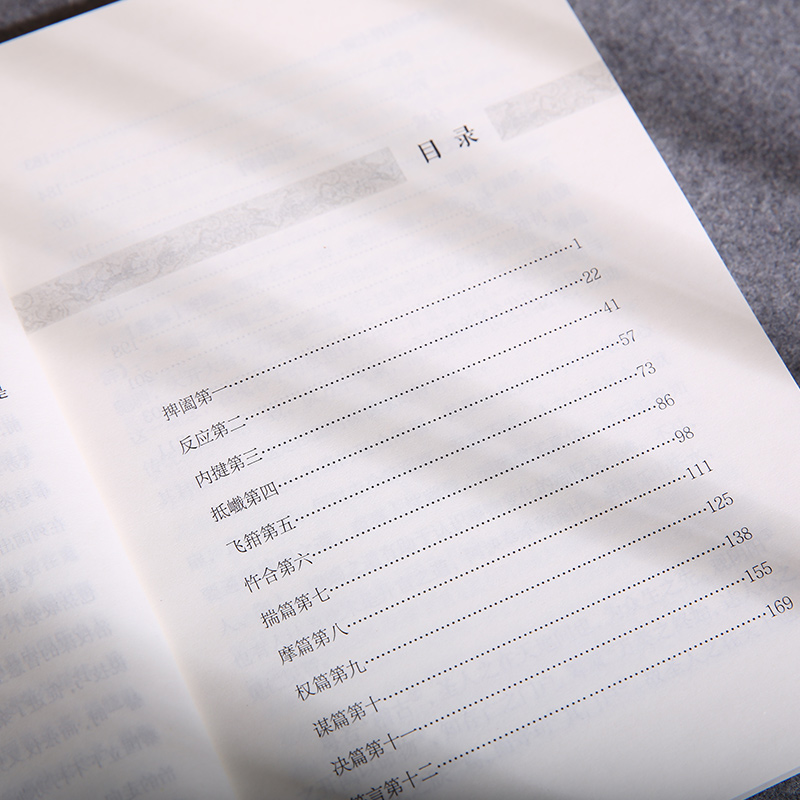 目录
捭阖第一……1
反应第二……22
内揵第三……41
抵巇第四……57
飞箝第五……73
忤合第六……86
揣篇第七……98
摩篇第八……111
权篇第九……125
谋篇第十……138
决篇第十一……155
符言第十二……169